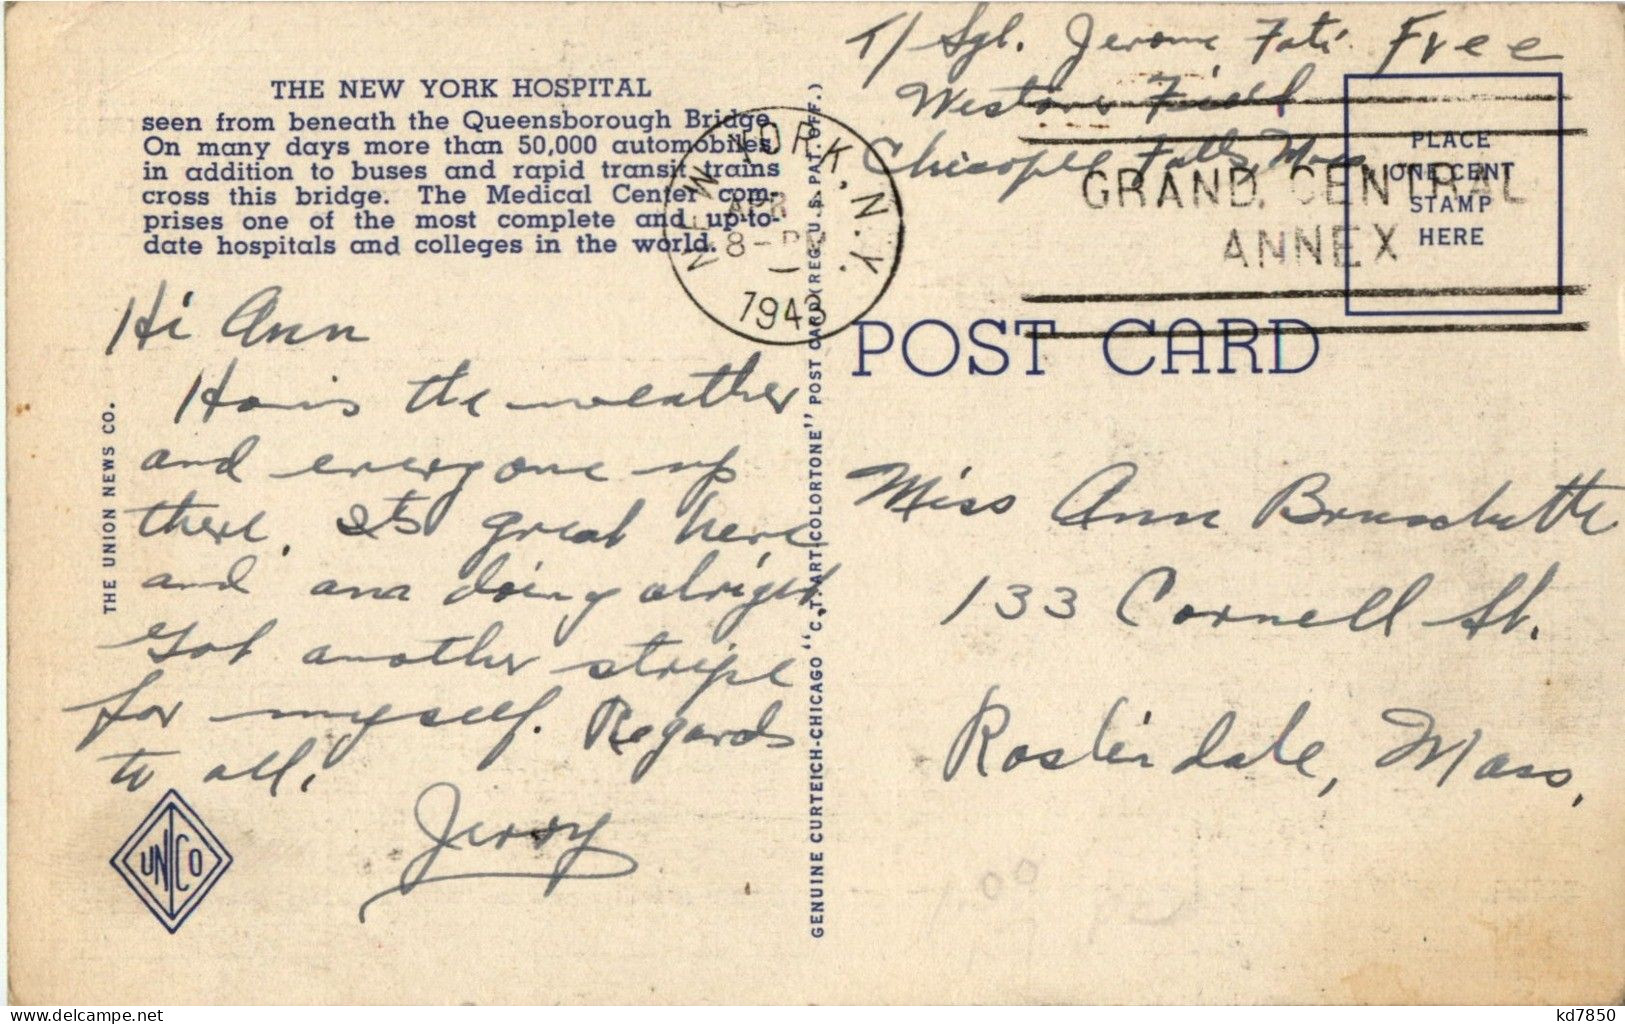 THE NEW YORK HOSPITAL
seen from beneath the Queensborough Bridge.
On many days more than 50,000 automobiles,
in addition to buses and rapid transit trains
cross this bridge. The Medical Center com-
prises one of the most complete and up-to-
date hospitals and colleges in the world.
NEW YORK, N.Y.
APR
8-PM
194
T/ Sgt. Jerome Free
Westover Field
Chicopee Falls Mass
GRAND CENTRAL
ANNEX
PLACE
ONE CENT
STAMP
HERE
POST CARD
Hi Ann
How is the weather
and everyone up
there. It's great here
and am doing alright.
Got another stripe
for myself. Regards
to all.
Jerry
THE UNION NEWS CO.
UN CO
GENUINE CURTEICH-CHICAGO "C.T. ART-COLORTONE" POST CARD (REG. U.S. PAT. OFF.)
Miss Ann
133 Cornell St.
Roslindale, Mass.
1.00
delcampe.net
kd7850